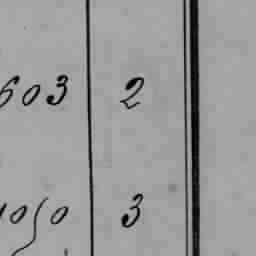 603 2
1050 3